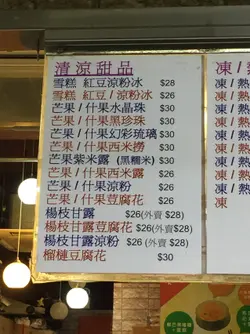 清涼甜品
雪糕 紅豆涼粉冰 $28
雪糕 紅豆/涼粉冰 $26
芒果/什果水晶珠 $30
芒果/什果黑珍珠 $30
芒果/什果幻彩琉璃 $30
芒果/什果西米撈 $30
芒果紫米露 (黑糯米) $30
芒果/什果西米露 $26
芒果/什果涼粉 $26
芒果/什果荳腐花 $26
楊枝甘露 $26(外賣 $28)
楊枝甘露荳腐花 $26(外賣 $28)
楊枝甘露涼粉 $26 (外賣 $28)
榴槤荳腐花 $30
凍/熱
凍/熱
凍/熱
凍/熱
凍/熱
凍/熱
凍/熱
凍/熱
凍